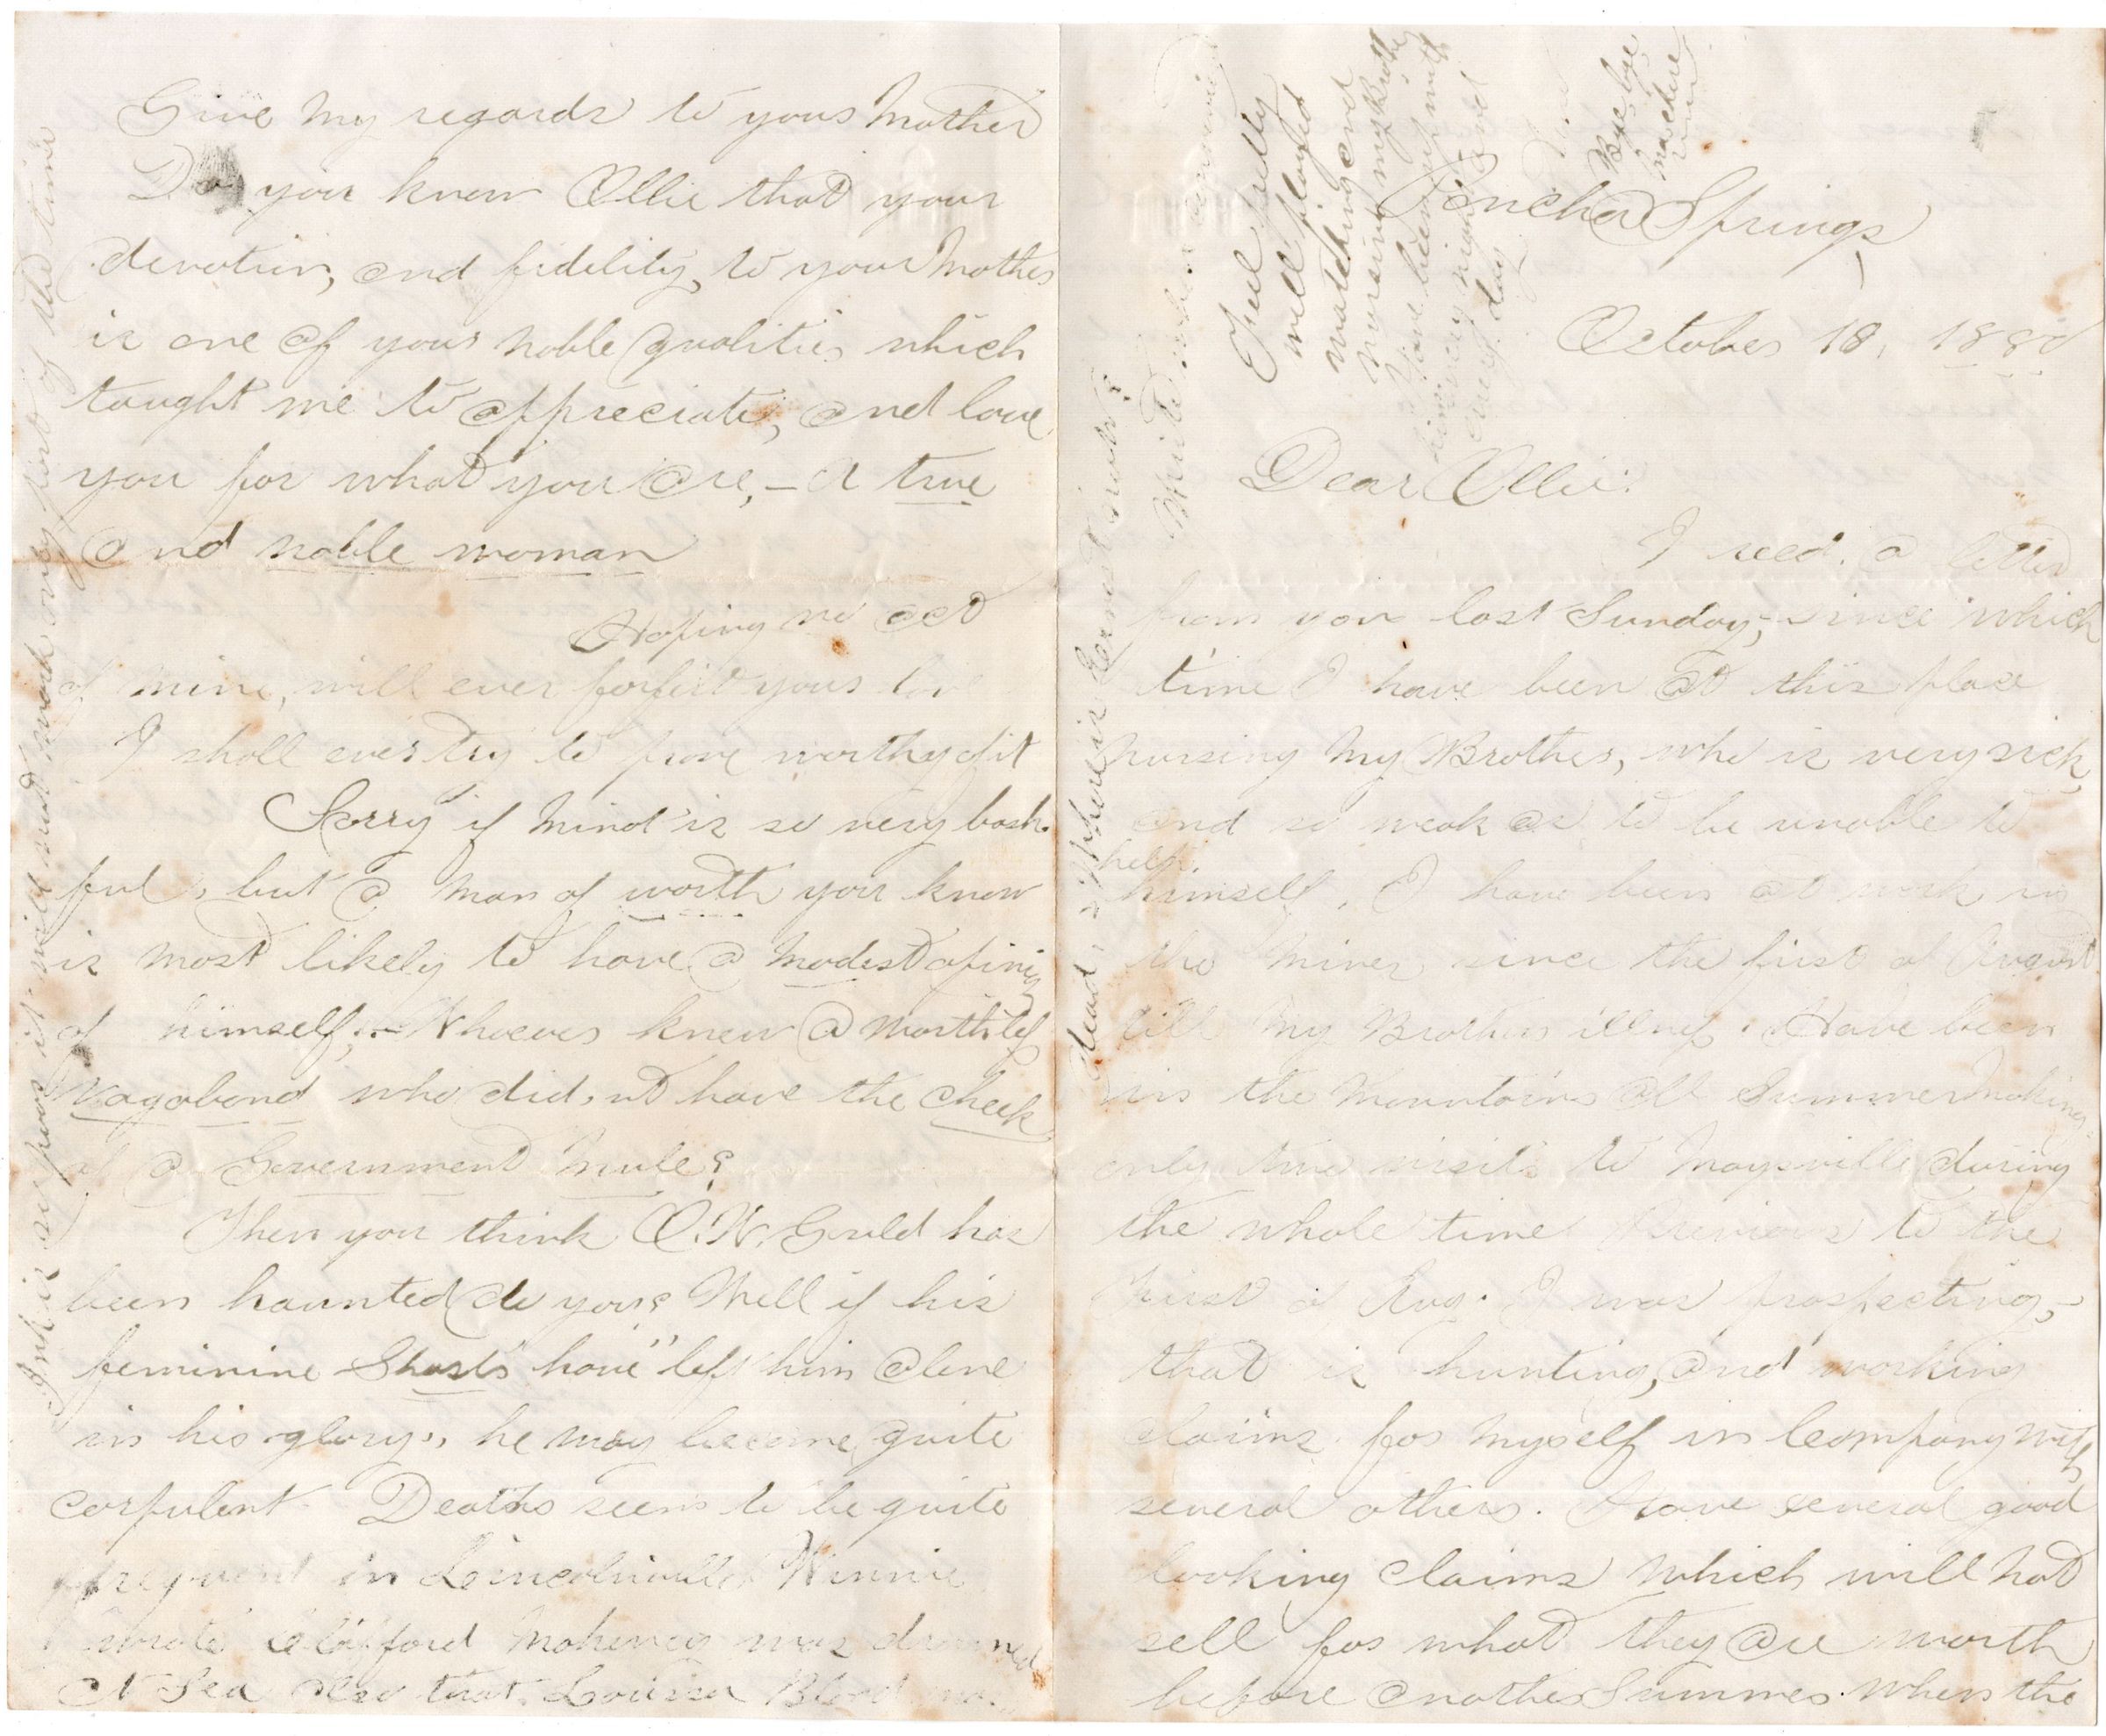 Poncha Springs
October 18, 1880
Dear Ollie:
I recd. a letter
from you last Sunday, since which
time I have been at this place
nursing my Brother, who is very sick,
and so weak as to be unable to
help
himself. I have been at work in
the mines since the first of August
till my Brothers illness. Have been
in the Mountains all Summer making
only two visits to Maysville during
the whole time Previous to the
first of Aug. I was prospecting,-
that is hunting, and working
claims for myself in Company with
several others. Have several good
looking claims which will not
sell for what they are worth
before another Summer. When the
Feel pretty
well played
watching and
nursing my Brother
Have been up with
him every night and
every day
Bye bye
Give my regards to your Mother
Do you know Ollie that your
devotion, and fidelity, to your Mother
is one of your noble qualities which
taught me to appreciate, and love
you for what you are,- a true
and noble woman
Hoping no act
of mine, will ever forfeit your love
I shall ever try to prove worthy of it
Sorry if mind is so very bash-
ful, but a man of worth you know
is most likely to have a modest opinion
of himself;- Whoever knew a worthless
vagabond who did,nt have the cheek
of a Government Mule?
Then you think O.W. Gould has
been haunted do you? Well if his
feminine Ghosts have "left him alone
in his glory", he may become quite
corpulent. Deaths seem to be quite
frequent in Lincolnville Winnie
wrote Clifford Mahoney was drowned
at Sea also that Louisa Blood
Ink is so poor it will work only part of the time
dead,